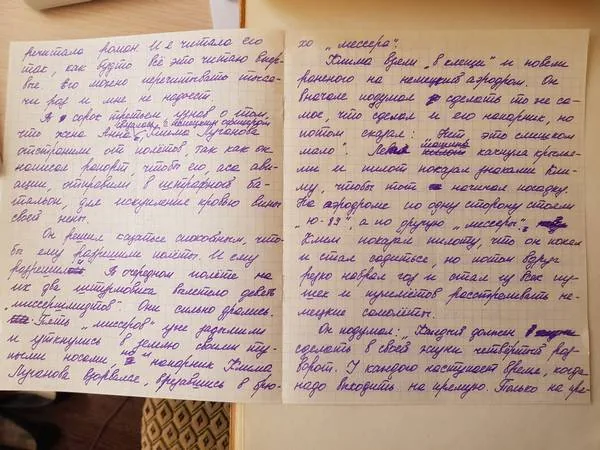 речитала роман. И е читала его
так, как будто всё это читаю впер-
вые. Его можно перечитывать тыся-
чи раз и мне не надоест.
В сорок третьем, узнав о том,
что жена Анна бежала с немецким офицером, Клима Луганова
отстранили от полётов, так как он
написал рапорт, чтобы его, аса ави-
ации, отправили в штрафной ба-
тальон, для искупления кровью вины
своей жены.
Он решил казаться спокойным, что-
бы ему разрешили полёты. И ему
разрешили. В очередном полёте на
их два штурмовика налетело девять
„мессершмидтов". Они сильно дрались.
Пять „мессеров" уже задымили
и уткнулись в землю своими ту-
пыми носами, но и напарник Клима
Луганова взорвался, врезавшись в брю-
хо „мессера".
Клима взяли „в клещи" и повели
раненого на немецкий аэродром. Он
вначале подумал сделать то же са-
мое, что сделал и его напарник, но
потом сказал: „Нет, это слишком
мало". машина качнула крылья-
ми и пилот показал знаками Кли-
му, чтобы тот начинал посадку.
На аэродроме по одну сторону стояли
„Ю-89", а по другую „мессеры".
Клим показал пилоту, что он понял
и стал садиться, но потом вдруг
резко набрал газ и стал из всех пу-
шек и пулемётов расстреливать не-
мецкие самолёты.
Он подумал: „Каждый должен
сделать в своей жизни четвёртый раз-
ворот. У каждого наступает время, когда
надо выходить на прямую. Только на пря-